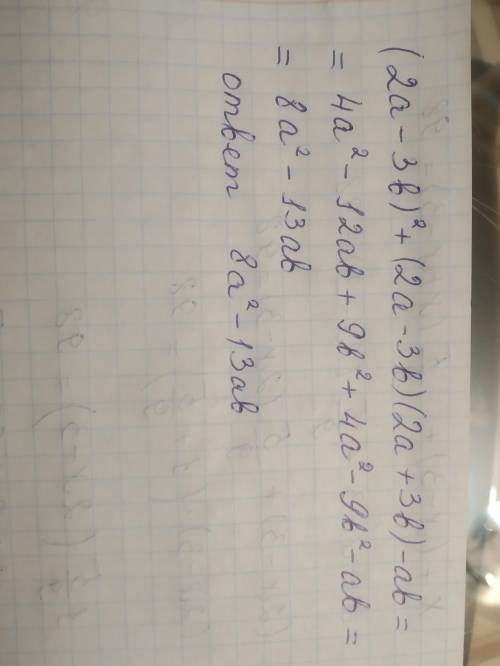 (2a - 3b)² + (2a - 3b)(2a + 3b) - ab =
= 4a² - 12ab + 9b² + 4a² - 9b² - ab =
= 8a² - 13ab
ответ 8a² - 13ab